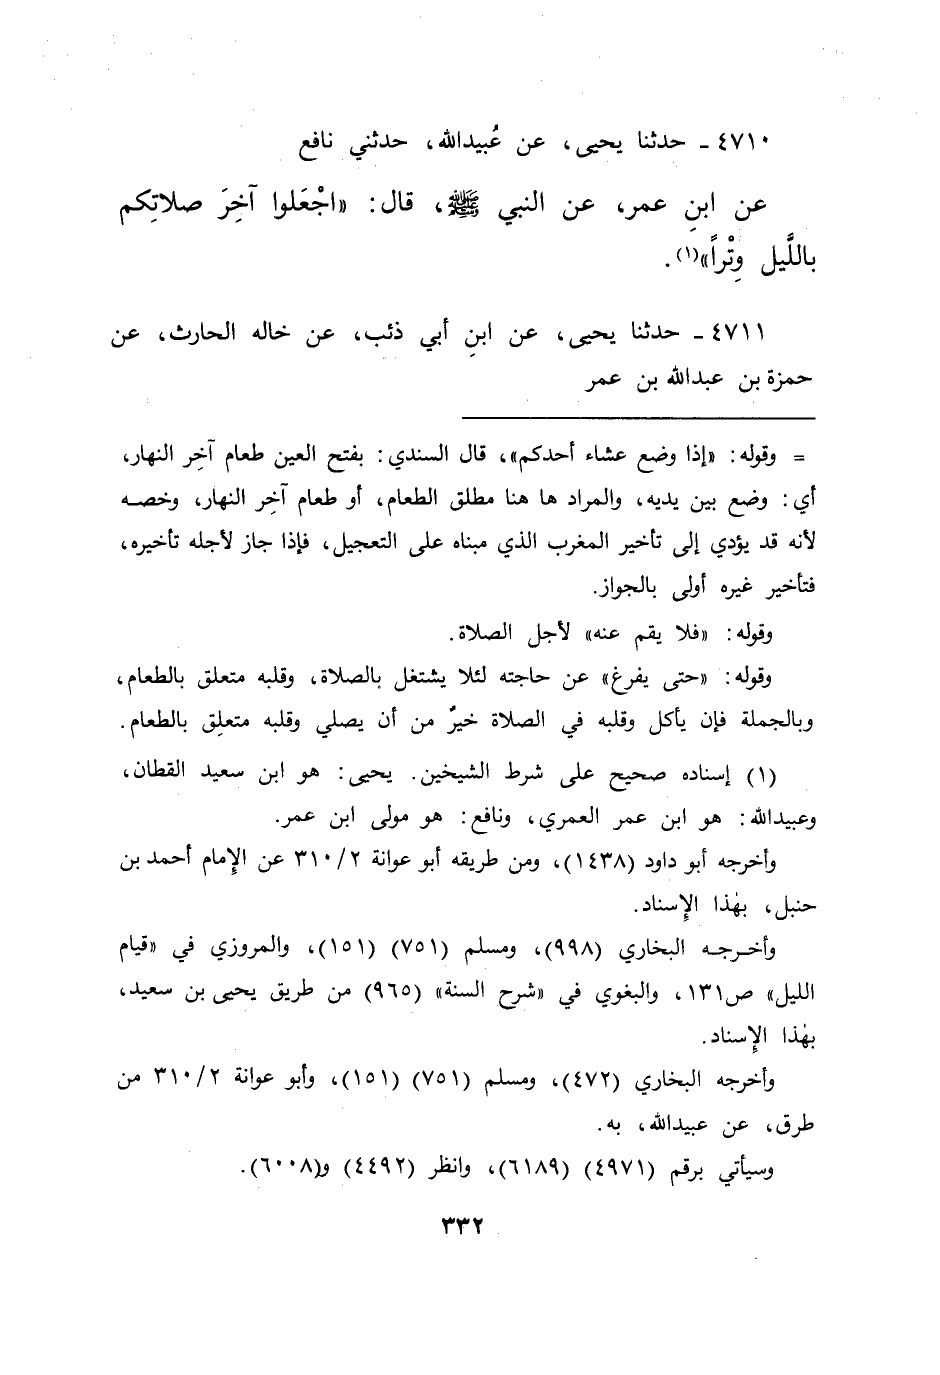 ٤٧١٠ - حدثنا يحيى، عن عُبيدالله، حدثني نافع
عن ابنِ عمر، عن النبي ﷺ، قال: «اجْعَلوا آخِرَ صلاتِكم
باللَّيل وِتْراً»(١).
٤٧١١ - حدثنا يحيى، عن ابنِ أبي ذئب، عن خاله الحارث، عن
حمزة بن عبدالله بن عمر
= وقوله: «إذا وضع عشاء أحدكم»، قال السندي: بفتح العين طعام آخِر النهار،
أي: وضع بين يديه، والمراد ها هنا مطلق الطعام، أو طعام آخِر النهار، وخصه
لأنه قد يؤدي إلى تأخير المغرب الذي مبناه على التعجيل، فإذا جاز لأجله تأخيره،
فتأخير غيره أولى بالجواز.
وقوله: «فلا يقم عنه» لأجل الصلاة.
وقوله: «حتى يفرغ» عن حاجته لئلا يشتغل بالصلاة، وقلبه متعلق بالطعام،
وبالجملة فإن يأكل وقلبه في الصلاة خيرٌ من أن يصلي وقلبه متعلِق بالطعام.
(١) إسناده صحيح على شرط الشيخين. يحيى: هو ابن سعيد القطان،
وعبيدالله: هو ابن عمر العمري، ونافع: هو مولى ابن عمر.
وأخرجه أبو داود (١٤٣٨)، ومن طريقه أبو عوانة ٣١٠/٢ عن الإِمام أحمد بن
حنبل، بهٰذا الإِسناد.
وأخرجه البخاري (٩٩٨)، ومسلم (٧٥١) (١٥١)، والمروزي في «قيام
الليل» ص١٣١، والبغوي في «شرح السنة» (٩٦٥) من طريق يحيى بن سعيد،
بهٰذا الإِسناد.
وأخرجه البخاري (٤٧٢)، ومسلم (٧٥١) (١٥١)، وأبو عوانة ٣١٠/٢ من
طرق، عن عبيدالله، به.
وسيأتي برقم (٤٩٧١) (٦١٨٩)، وانظر (٤٤٩٢) و(٦٠٠٨).
٣٣٢